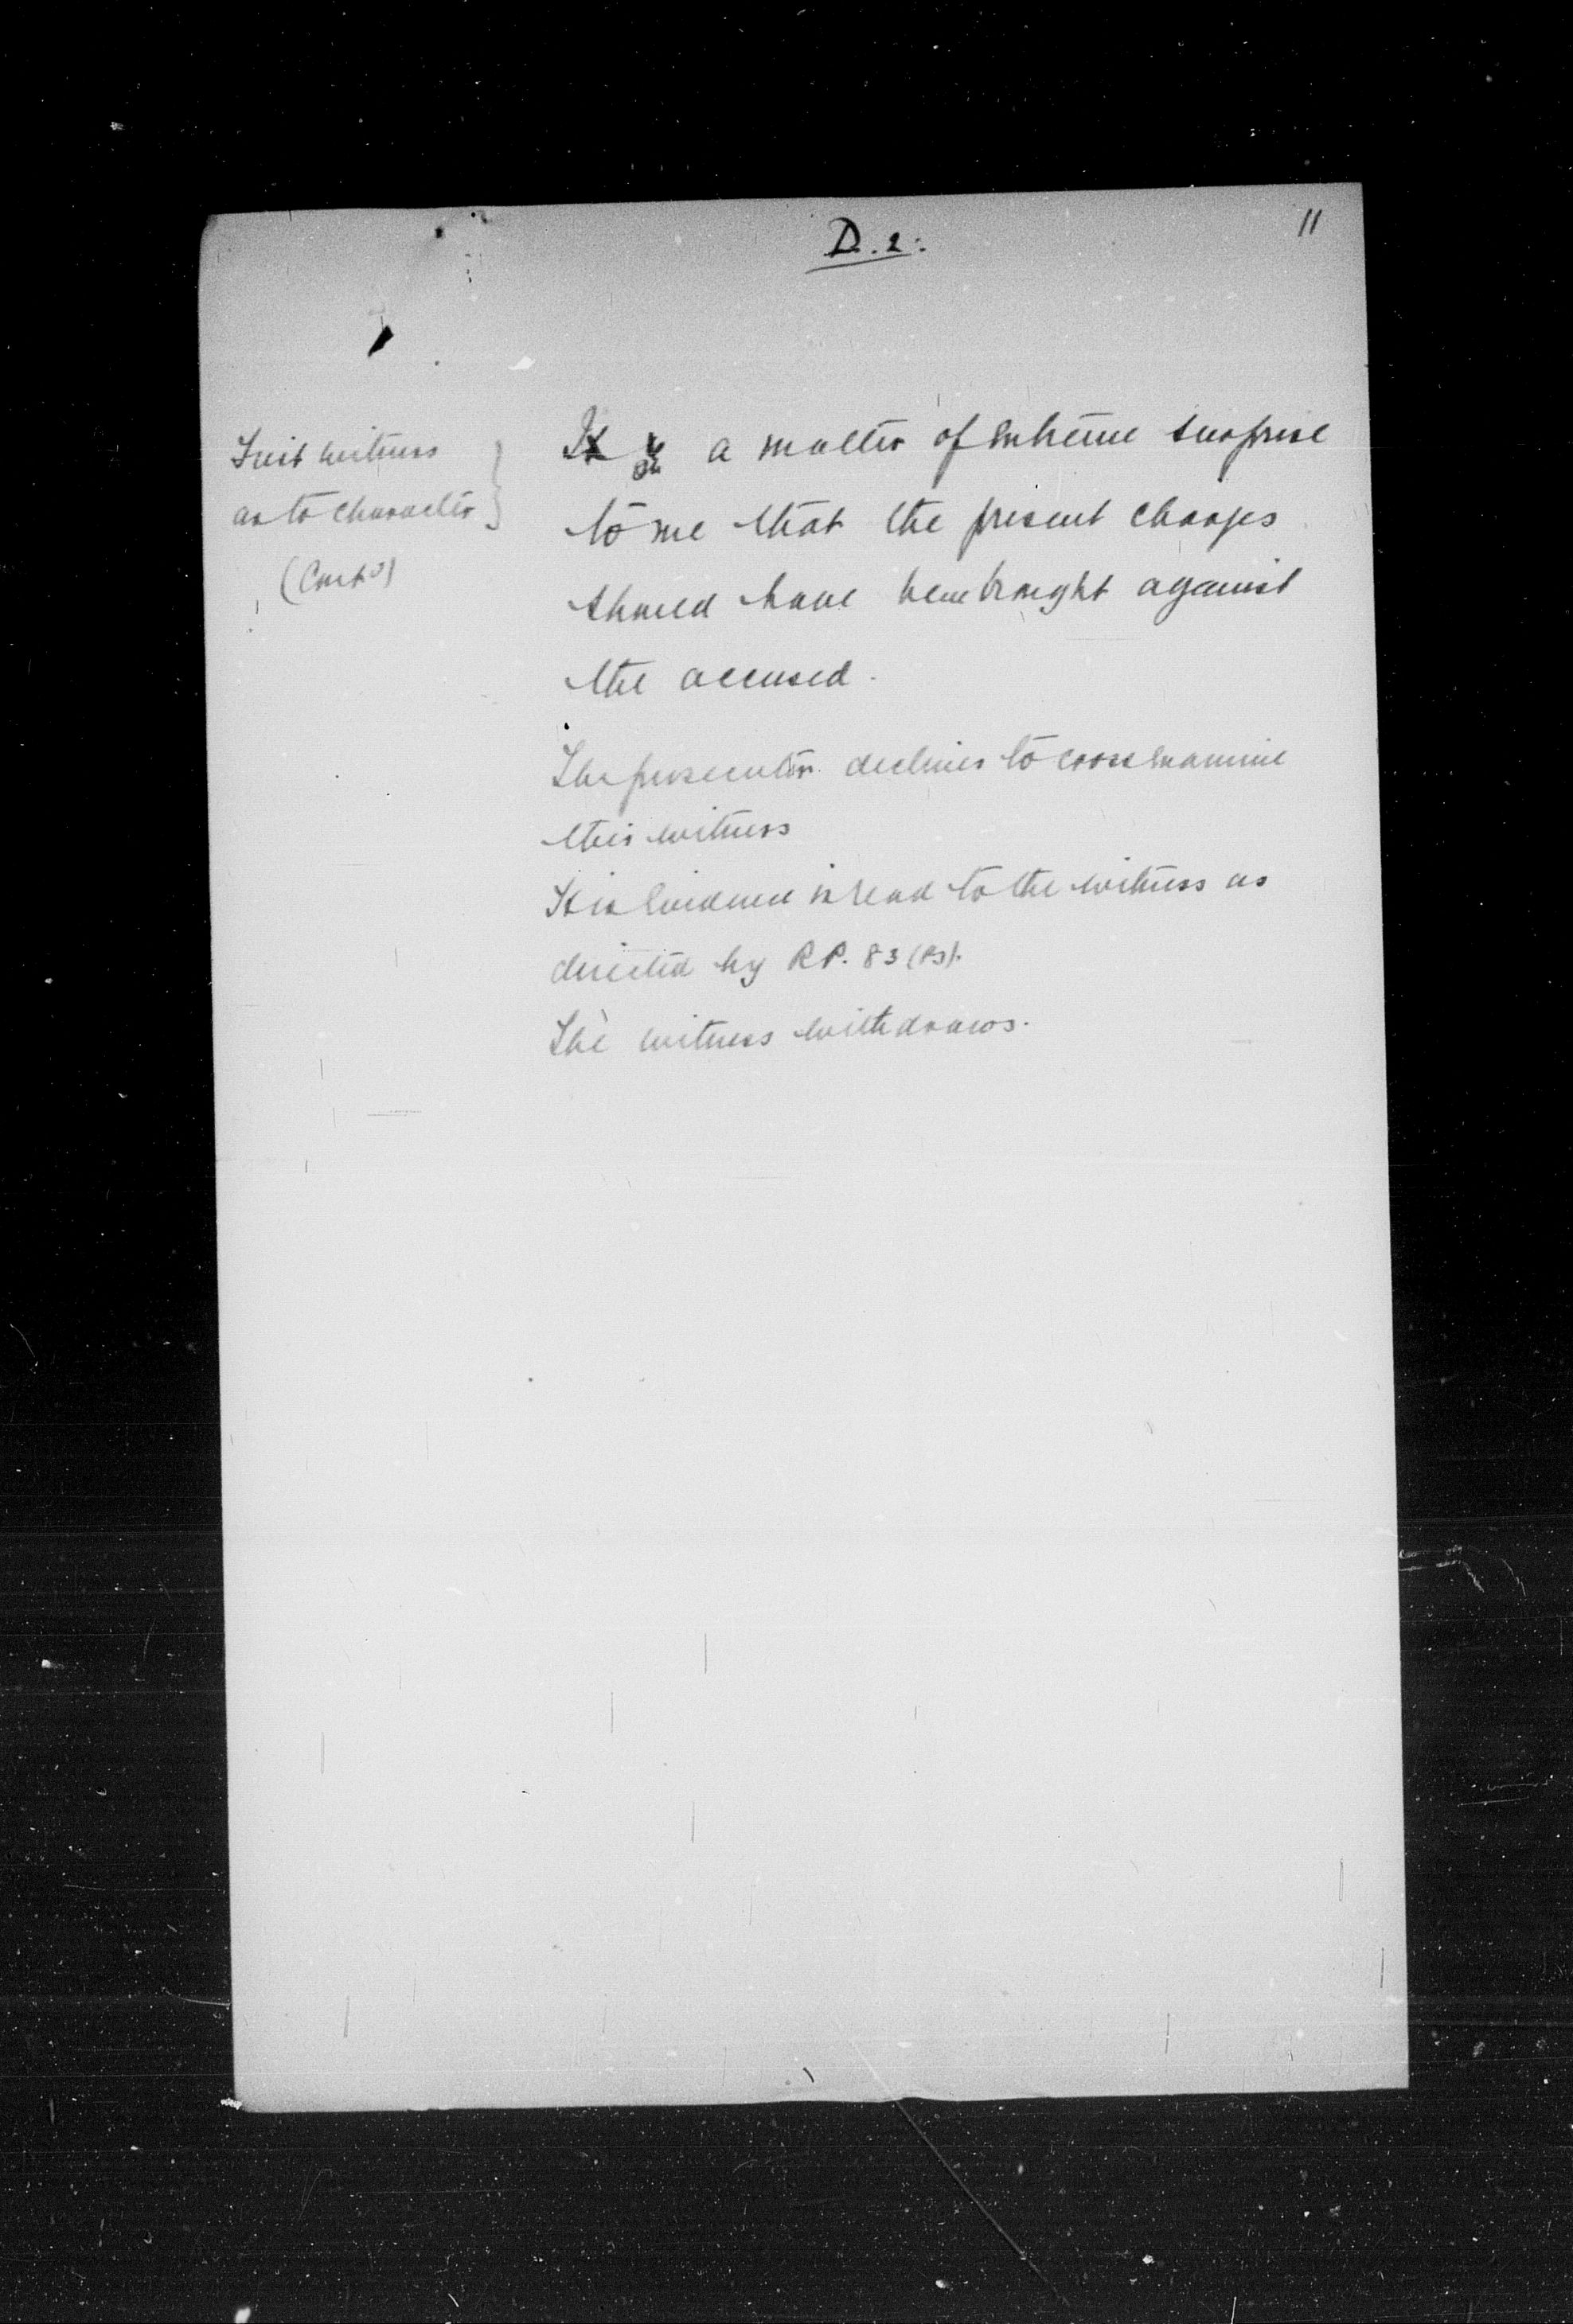 D. 2.
11
First witness
as to character
(Contd)
It is a matter of extreme surprise
to me that the present charges
should have been brought against
the accused.
The prosecutor declines to cross examine
this witness
His evidence is read to the witness as
directed by R.P. 83 (B).
The witness withdraws.